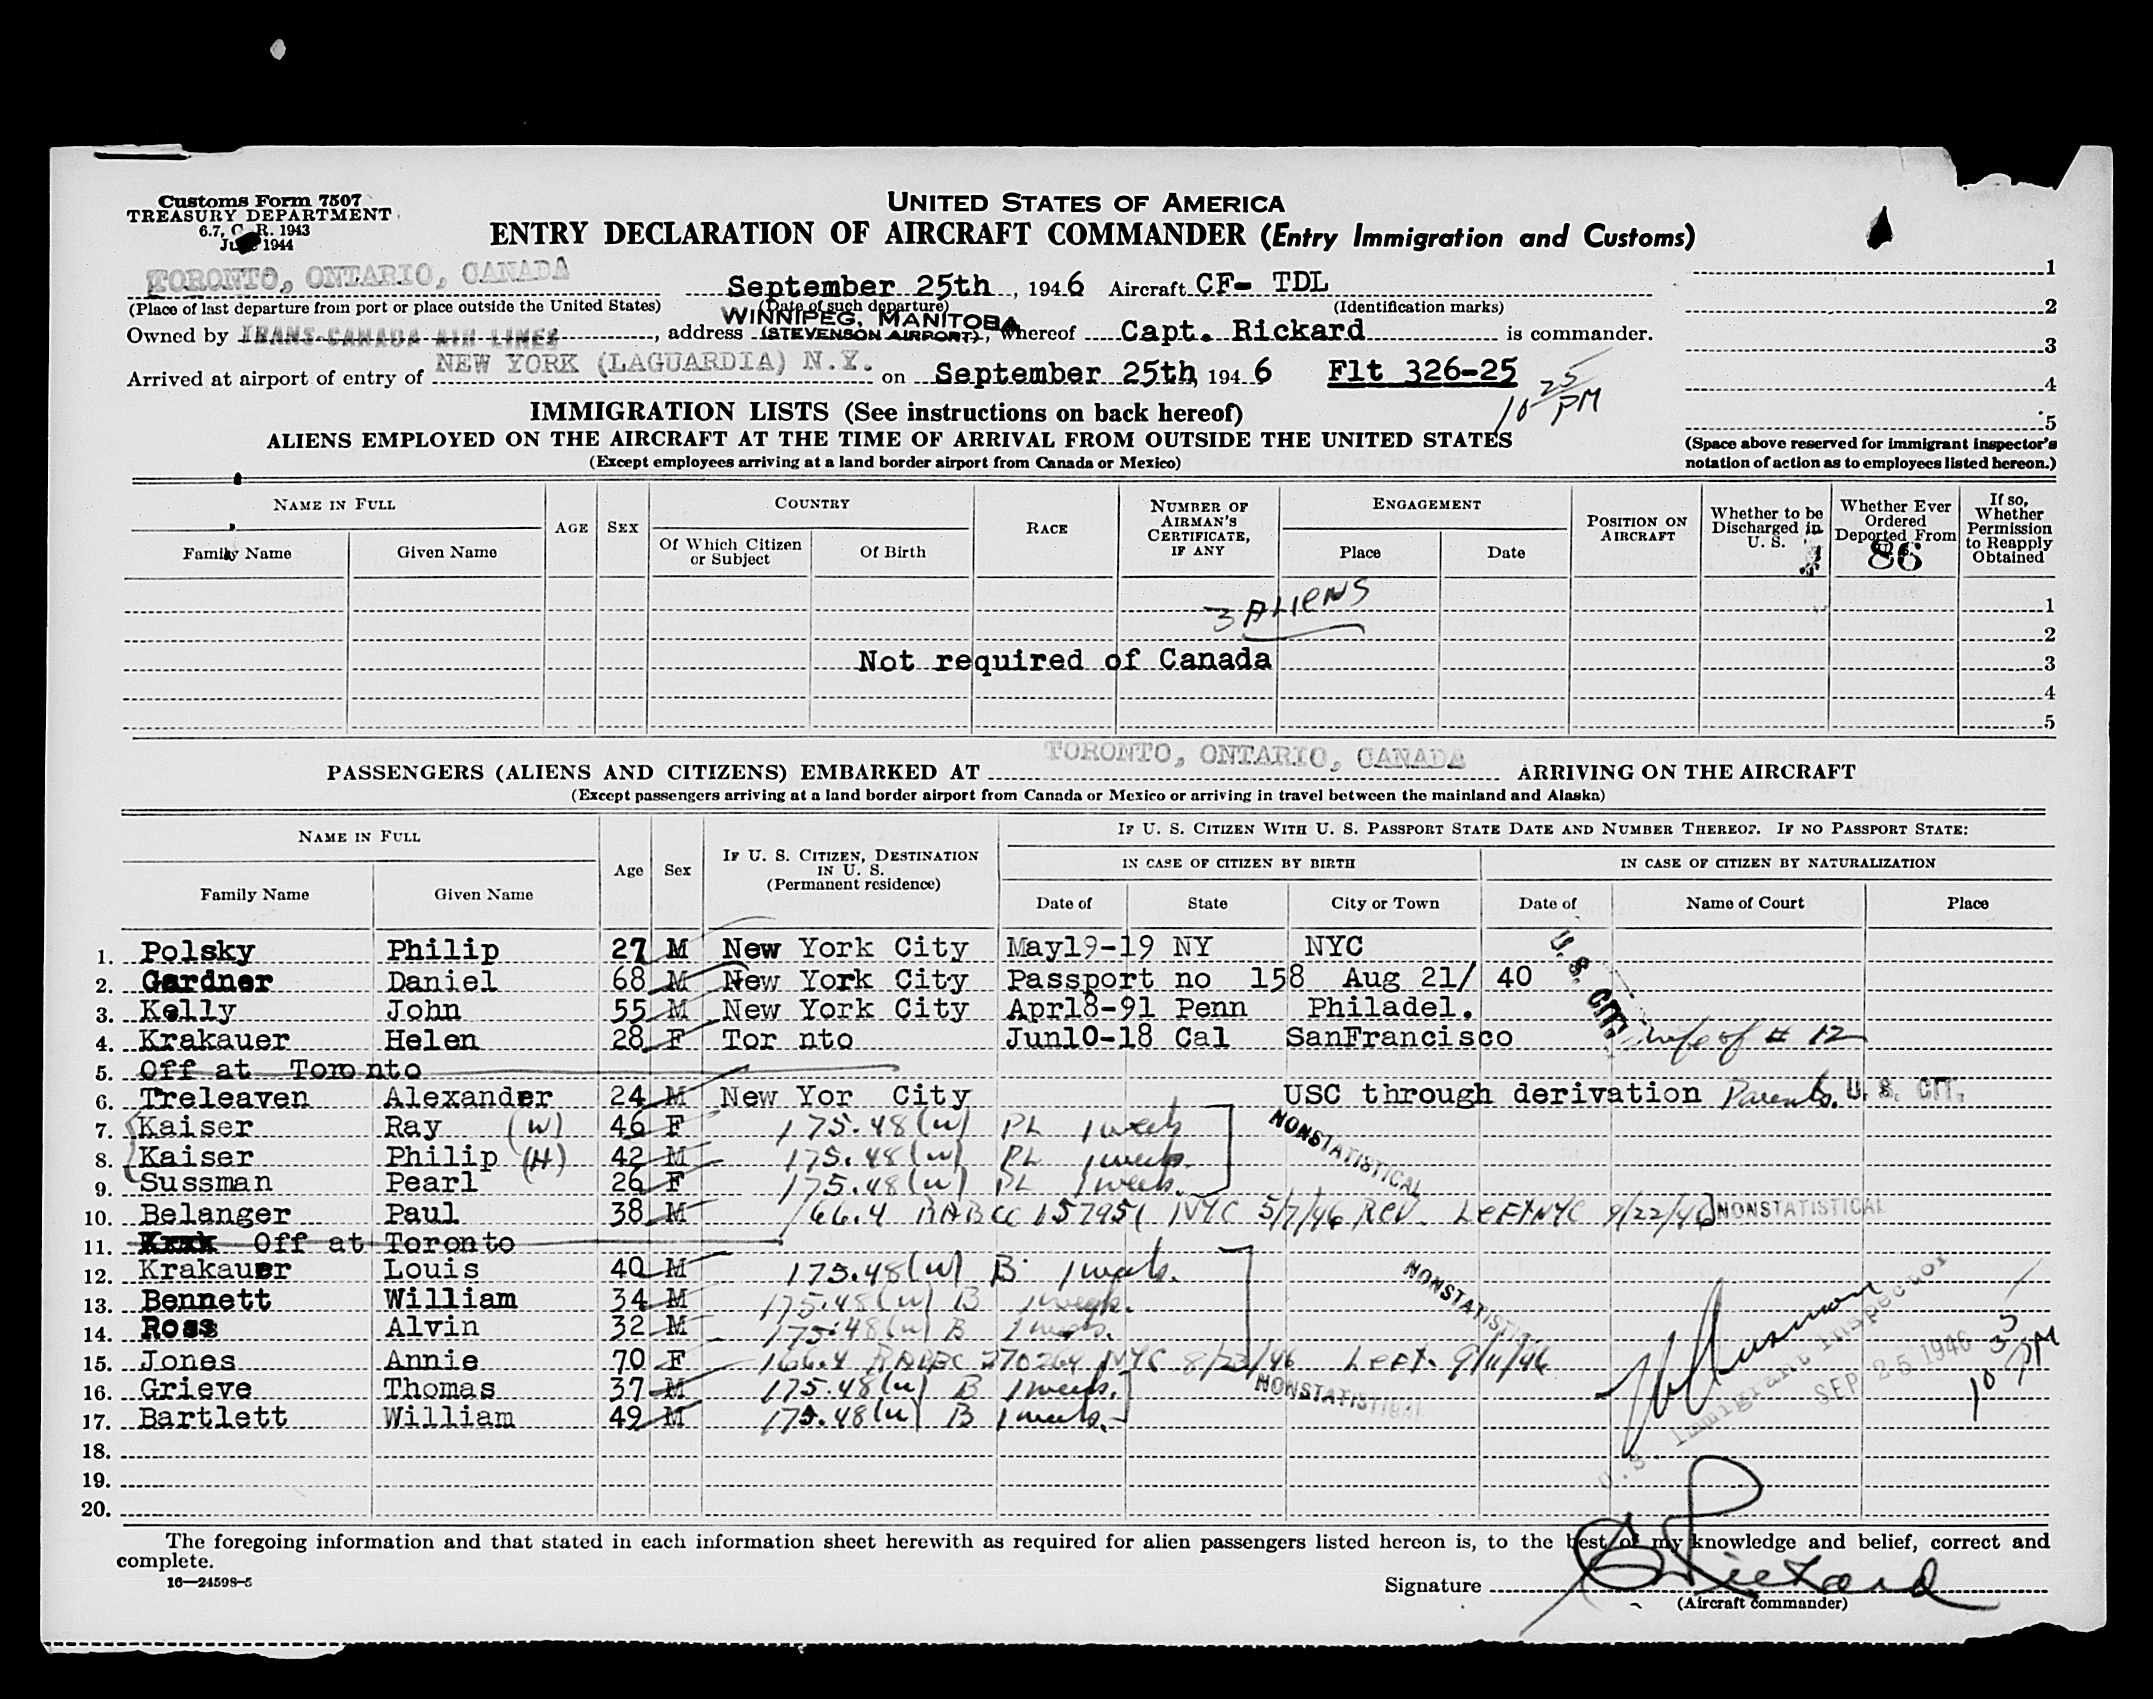 Customs Form 7507
TREASURY DEPARTMENT
6.7, C. R. 1943
June 1944
UNITED STATES OF AMERICA
ENTRY DECLARATION OF AIRCRAFT COMMANDER (Entry Immigration and Customs)
TORONTO, ONTARIO, CANADA September 25th, 1946 Aircraft CF- TDL 1
(Place of last departure from port or place outside the United States) (Date of such departure) (Identification marks) 2
Owned by TRANS-CANADA AIR LINES, address WINNIPEG, MANITOBA (STEVENSON AIRPORT), whereof Capt. Rickard is commander. 3
Arrived at airport of entry of NEW YORK (LAGUARDIA) N.Y. on September 25th, 1946 Flt 326-25 4
10 25 PM
IMMIGRATION LISTS (See instructions on back hereof) 5
ALIENS EMPLOYED ON THE AIRCRAFT AT THE TIME OF ARRIVAL FROM OUTSIDE THE UNITED STATES (Space above reserved for immigrant inspector's
(Except employees arriving at a land border airport from Canada or Mexico) notation of action as to employees listed hereon.)
NAME IN FULL AGE SEX COUNTRY RACE NUMBER OF AIRMAN'S CERTIFICATE, IF ANY ENGAGEMENT POSITION ON AIRCRAFT Whether to be Discharged in U. S. Whether Ever Ordered Deported From U. S. If so, Whether Permission to Reapply Obtained
Family Name Given Name Of Which Citizen or Subject Of Birth Place Date 86
3 ALIENS 1
2
Not required of Canada 3
4
5
PASSENGERS (ALIENS AND CITIZENS) EMBARKED AT TORONTO, ONTARIO, CANADA ARRIVING ON THE AIRCRAFT
(Except passengers arriving at a land border airport from Canada or Mexico or arriving in travel between the mainland and Alaska)
NAME IN FULL Age Sex IF U. S. CITIZEN, DESTINATION IN U. S. (Permanent residence) IF U. S. CITIZEN WITH U. S. PASSPORT STATE DATE AND NUMBER THEREOF. IF NO PASSPORT STATE:
IN CASE OF CITIZEN BY BIRTH IN CASE OF CITIZEN BY NATURALIZATION
Family Name Given Name Date of State City or Town Date of Name of Court Place
1. Polsky Philip 27 M New York City May19-19 NY NYC
2. Gardner Daniel 68 M New York City Passport no 158 Aug 21/ 40
U. S. CIT.
3. Kelly John 55 M New York City Apr18-91 Penn Philadel.
4. Krakauer Helen 28 F Tor nto Jun10-18 Cal SanFrancisco wife of # 12
5. Off at Toronto
6. Treleaven Alexander 24 M New Yor City USC through derivation Parents. U. S. CIT.
7. Kaiser Ray (W) 46 F 175.48(w) PL 1 week
8. Kaiser Philip (H) 42 M 175.48(w) PL 1 week
NONSTATISTICAL
9. Sussman Pearl 26 F 175.48(w) PL 1 week.
10. Belanger Paul 38 M 166.4 RABCC 157951 NYC 5/7/46 REV. LEFT NYC 9/22/46 NONSTATISTICAL
11. Off at Toronto
12. Krakauer Louis 40 M 175.48(w) B 1 week.
13. Bennett William 34 M 175.48(w) B 1 week.
NONSTATISTICAL
14. Ross Alvin 32 M 175.48(w) B 1 week.
15. Jones Annie 70 F 166.4 RABCC 270264 NYC 8/23/46 Left. 9/11/46
16. Grieve Thomas 37 M 175.48(w) B 1 week. NONSTATISTICAL
17. Bartlett William 49 M 175.48(w) B 1 week.
U. S. Immigrant Inspector
SEP 25 1946
10 35 PM
18.
19.
20.
The foregoing information and that stated in each information sheet herewith as required for alien passengers listed hereon is, to the best of my knowledge and belief, correct and
complete.
16—24598-5
Signature Rickard
(Aircraft commander)